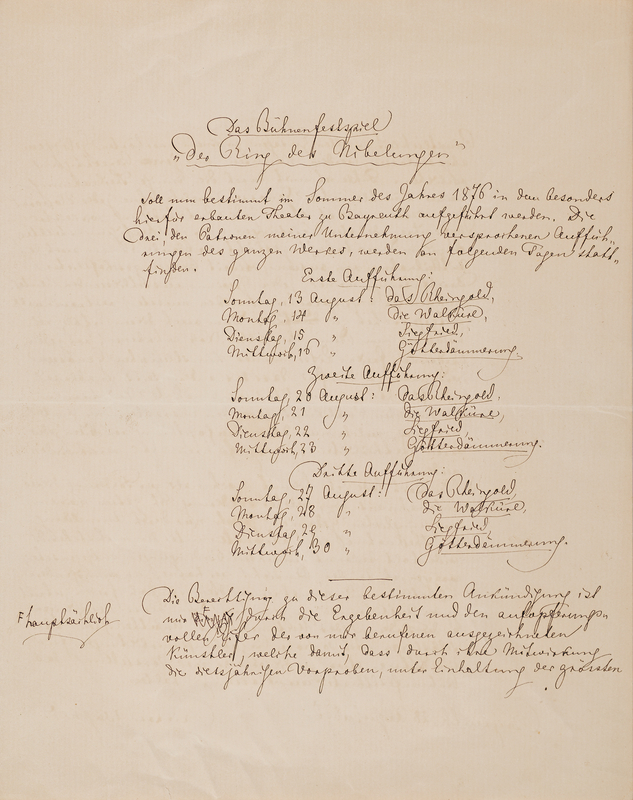 Das Bühnenfestspiel
„Der Ring des Nibelungen"
soll nun bestimmt im Sommer des Jahres 1876 in dem besonders
hierfür erbauten Theater zu Bayreuth aufgeführt werden. Die
drei, den Patronen meiner Unternehmung versprochenen Auffüh-
rungen des ganzen Werkes, werden an folgenden Tagen statt-
finden.
Erste Aufführung:
Sonntag, 13 August: das Rheingold,
Montag, 14 „ die Walküre,
Dienstag, 15 „ Siegfried,
Mittwoch, 16 „ Götterdämmerung.
Zweite Aufführung:
Sonntag, 20 August: das Rheingold,
Montag, 21 „ die Walküre,
Dienstag, 22 „ Siegfried
Mittwoch, 23 „ Götterdämmerung.
Dritte Aufführung:
Sonntag, 27 August: das Rheingold,
Montag, 28 „ die Walküre,
Dienstag 29 „ Siegfried,
Mittwoch, 30 „ Götterdämmerung.
Die Berechtigung zu dieser bestimmten Ankündigung ist
F hauptsächlich
mir F durch die Ergebenheit und den aufopferungs-
vollen Eifer der von mir berufenen ausgezeichneten
Künstler, welche damit, dass durch ihre Mitwirkung
die diesjährigen Vorproben, unter Einhaltung der grössten